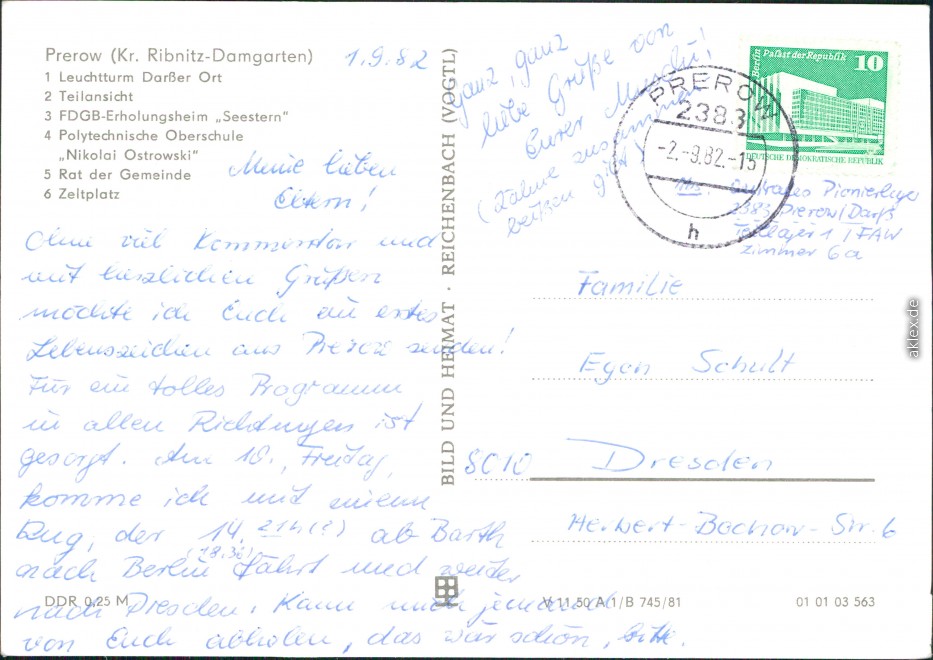 Prerow (Kr. Ribnitz-Damgarten)
1 Leuchtturm Darßer Ort
2 Teilansicht
3 FDGB-Erholungsheim „Seestern"
4 Polytechnische Oberschule
„Nikolai Ostrowski"
5 Rat der Gemeinde
6 Zeltplatz
1.9.82
Meine lieben
Eltern!
Ohne viel Kommentar und
mit herzlichen Grüßen
möchte ich Euch ein erstes
Lebenszeichen aus Prerow senden!
Für ein tolles Programm
in allen Richtungen ist
gesorgt. Am 10., Freitag,
komme ich mit einem
Zug, der 14. 21h(?) ab Barth
(18.36)
nach Berlin fährt und weiter
nach Dresden. Kann mich jemand
von Euch abholen, das wär schön, bitte.
Ganz, ganz
liebe Grüße von
Eurer
(Zähne zusammen
beißen gilt)
BILD UND HEIMAT · REICHENBACH (VOGTL)
Berlin Palast der Republik
10
DEUTSCHE DEMOKRATISCHE REPUBLIK
PREROW
2383
-2.-9.82.-15
h
Abs. Zentrales Pionierlager
2383 Prerow/Darß
Teillager 1 / FAW
Zimmer 6a
Familie
Egon Schult
8010 Dresden
Herbert-Bochow-Str. 6
DDR 0,25 M
V 11 50 A 1/B 745/81
01 01 03 563
aklex.de